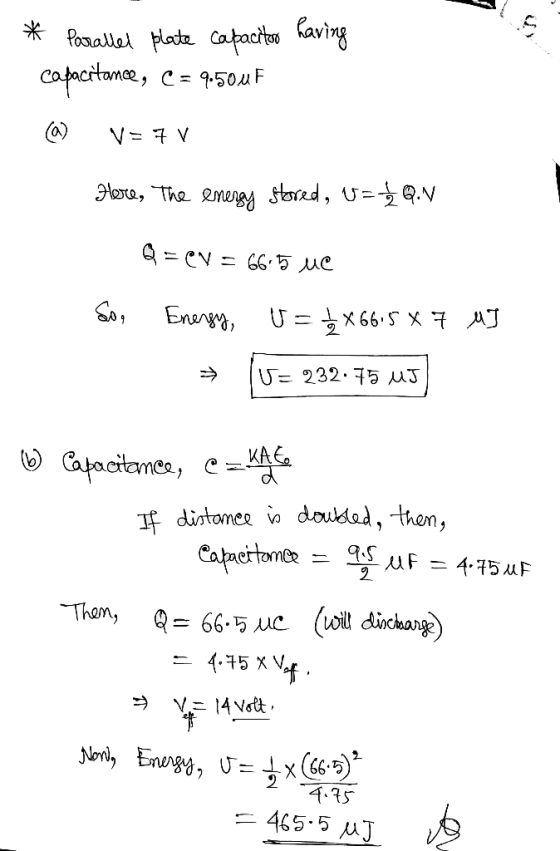 * Parallel plate capacitor having
capacitance, C = 9.50 μF
(a) V = 7 V
Here, The energy stored, U = 1/2 Q.V
Q = CV = 66.5 μC
So, Energy, U = 1/2 × 66.5 × 7 μJ
⇒ U = 232.75 μJ
(b) Capacitance, C = KAε₀/d
If distance is doubled, then,
Capacitance = 9.5/2 μF = 4.75 μF
Then, Q = 66.5 μC (will discharge)
= 4.75 × Veff.
⇒ Veff = 14 Volt.
Now, Energy, U = 1/2 × (66.5)²/4.75
= 465.5 μJ